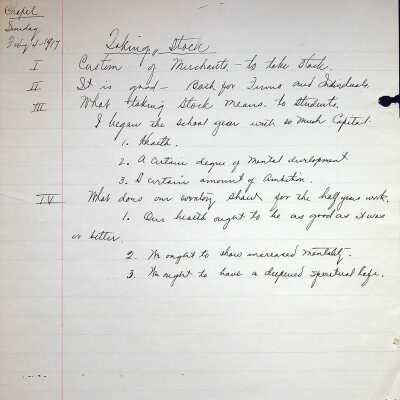 Chapel
Sunday
Feby 4-1917
Taking Stock
I Custom of Merchants - to take stock.
II It is good - Both for Firms and Individuals.
III What taking Stock means to Students.
I began the school year with so much Capital.
1. Health.
2. A certain degree of mental development
3. A certain amount of Ambition.
IV What does our inventory show for the half years work.
1. Our health ought to be as good as it was
or better.
2. We ought to show increased mentality.
3. We ought to have a deepened spiritual life.